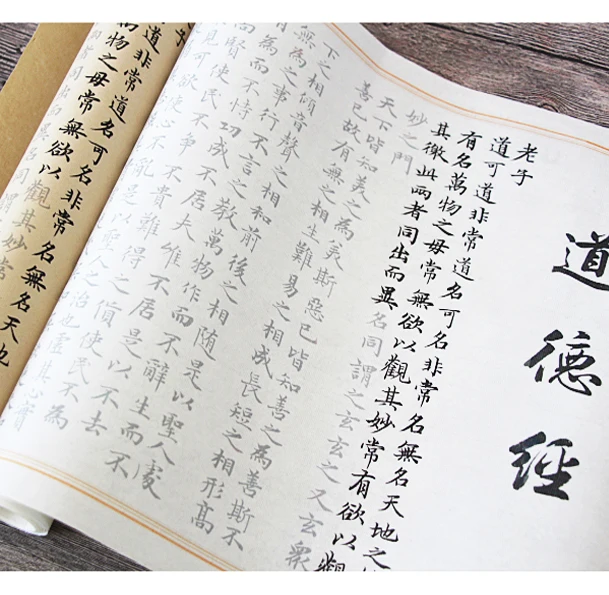 道德經
老子
道可道非常道名可名非常名無名天地之
有名萬物之母常無欲以觀其妙常有欲以觀
其徼此兩者同出而異名同謂之玄玄之又玄衆
妙之門
天下皆知美之為美斯惡已皆知善之為善斯不
善已故有無之相生難易之相成長短之相形高
下之相傾音聲之相和前後之相隨是以聖人處
無為之事行不言之教萬物作而不辭生而不
有為而不恃功成不居夫惟不居是以不去
尚賢使民不爭不貴難得之貨使民不為
見可欲使心不亂是以聖人之治也虛其心實
子
道非常道名可名非常名無名天地
萬物之母常無欲以觀其妙常